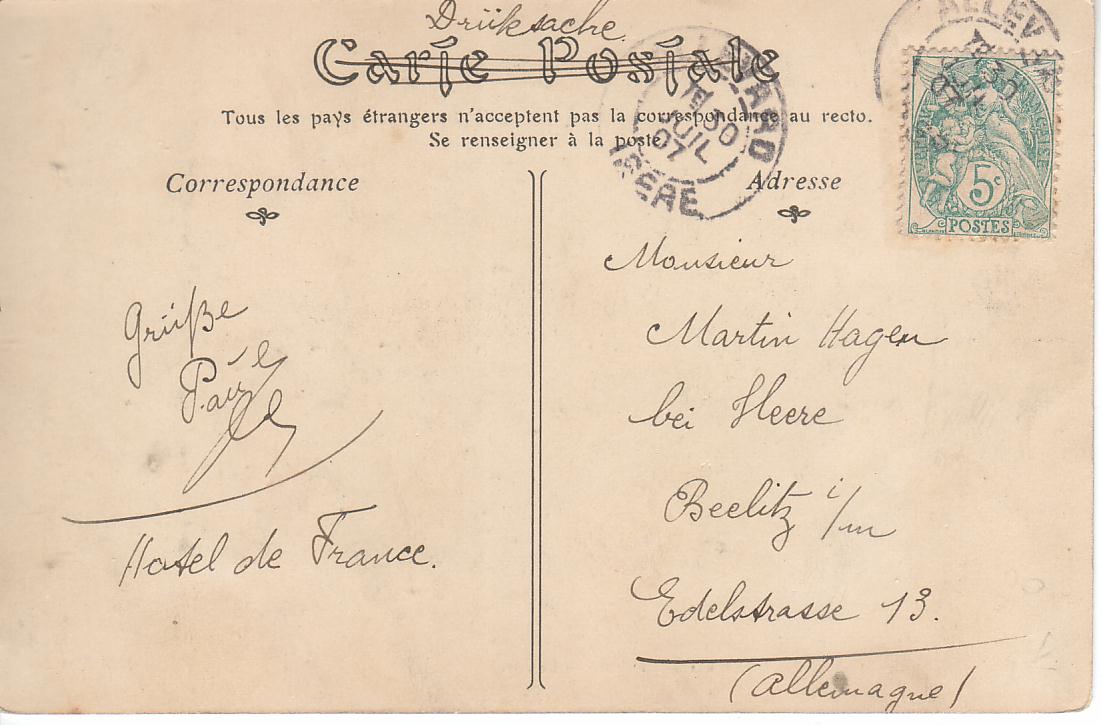 Drüksache.
Carte Postale
Tous les pays étrangers n'acceptent pas la correspondance au recto.
Se renseigner à la poste.
Correspondance
Adresse
ALLEVARD
30
JUIL
07
ISERE
ALLEV
5c
POSTES
Monsieur
Martin Hagen
bei Heere
Beelitz i/m
Edelstrasse 13.
(Allemagne)
Grüße
Hotel de France.